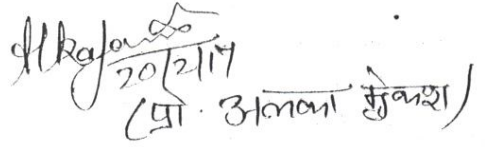 20/2/17
(प्रो. अलका मुकेश)